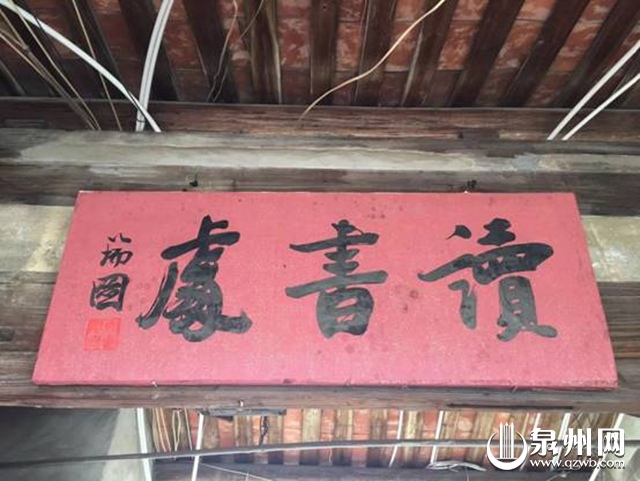 讀書處
八柳圖
泉州网
www.qzwb.com